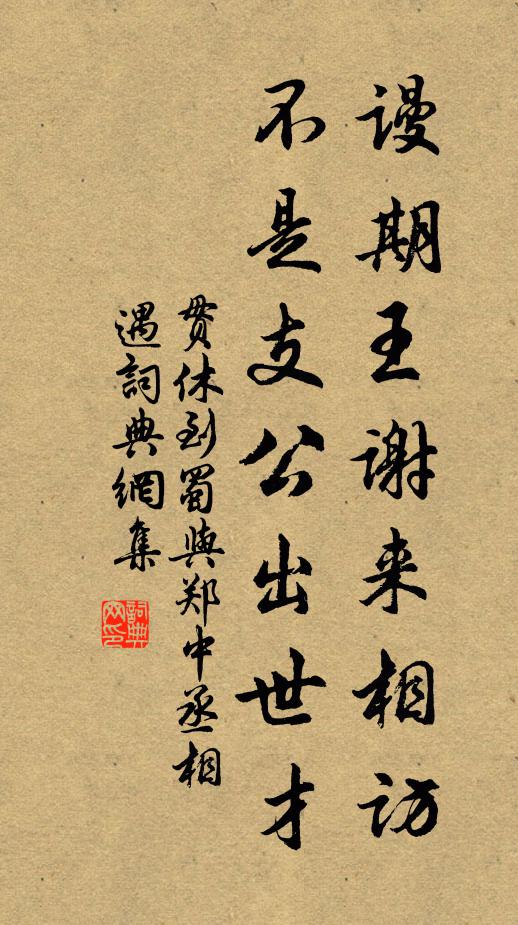 谩期王谢来相访
不是支公出世才
贯休到蜀与郑中丞相
遇詞典網集
詞典
网印